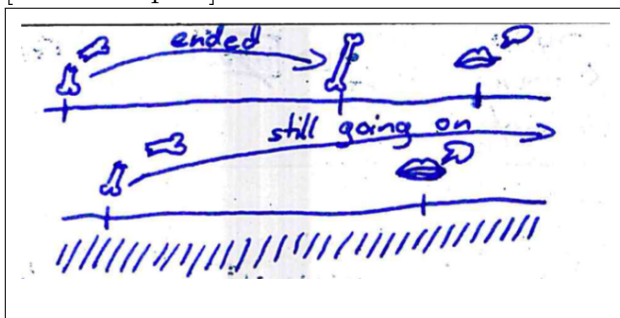 ended
still going on